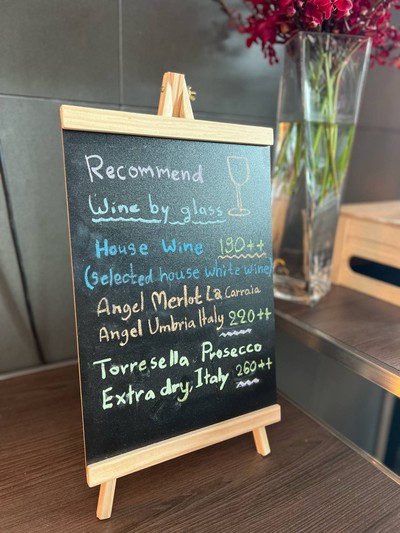 Recommend
Wine by glass
House Wine 190++
(selected house white wine)
Angel Merlot La Carraia
Angel Umbria Italy 220++
Torresella Prosecco
Extra dry, Italy 260++